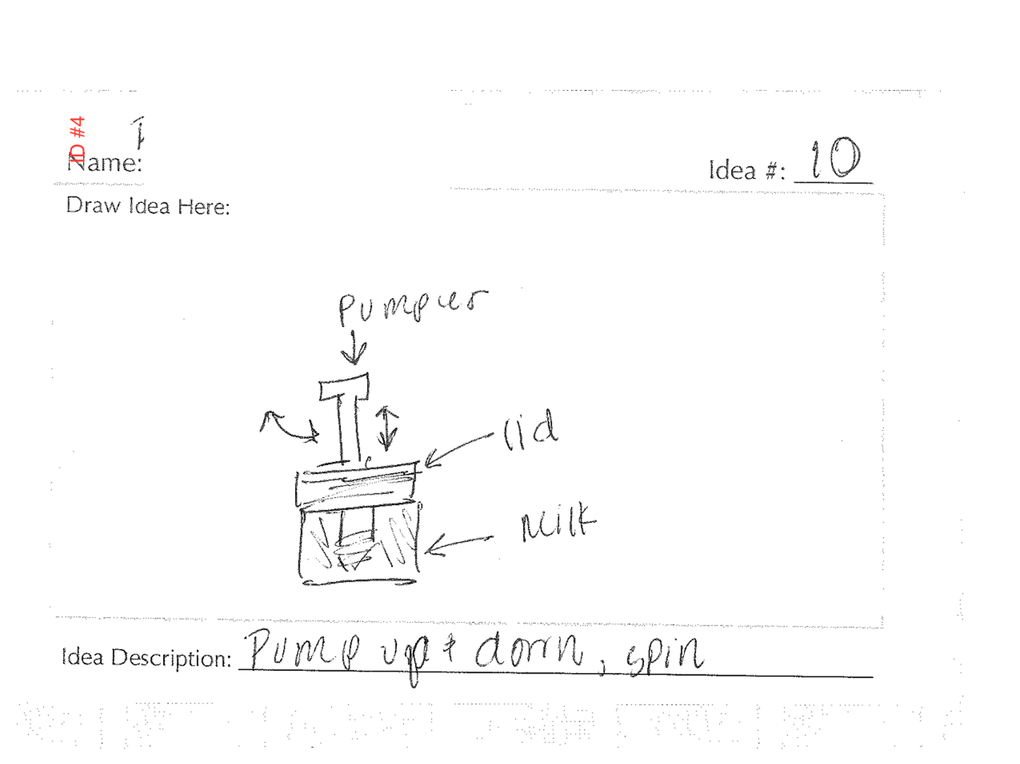 ID #4
Name:
Idea #: 10
Draw Idea Here:
Pumper
lid
Milk
Idea Description: Pump up & down, spin